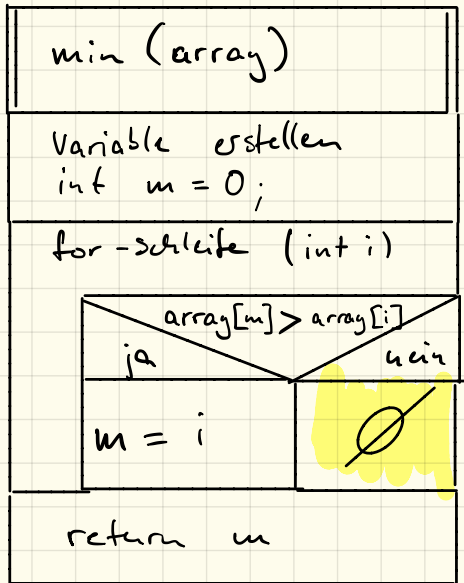 min (array)
Variable erstellen
int m = 0;
for-schleife (int i)
array[m] > array[i]
ja
nein
m = i
Ø
return m